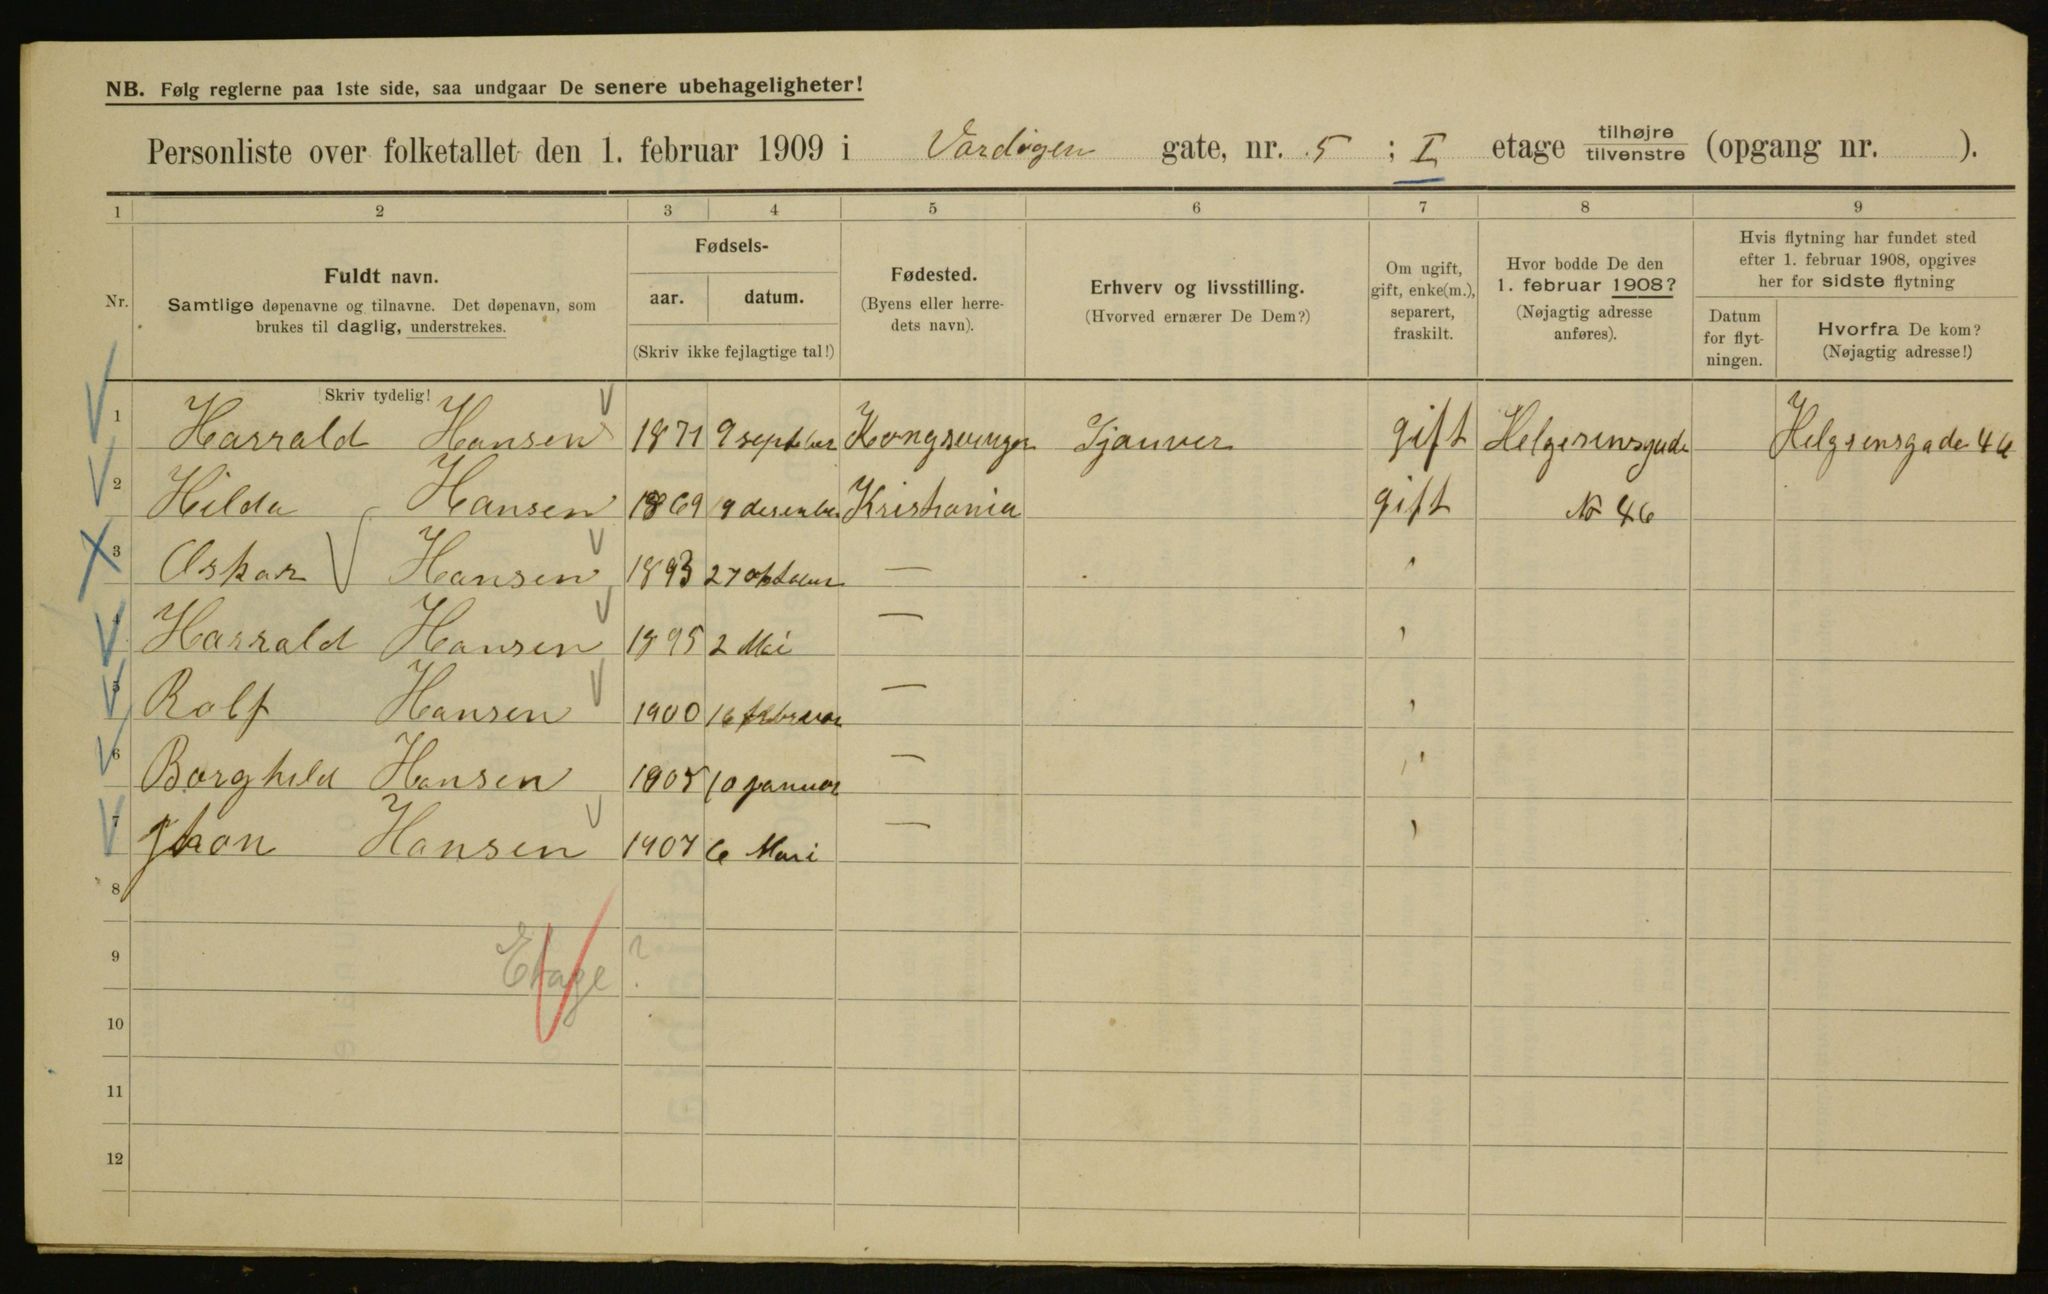 NB. Følg reglerne paa 1ste side, saa undgaar De senere ubehageligheter!
Personliste over folketallet den 1. februar 1909 i Vardøgen gate, nr. 5 ; I etage tilhøjre/tilvenstre (opgang nr. ).
1 2 3 4 5 6 7 8 9
Nr.
Fuldt navn.
Samtlige døpenavne og tilnavne. Det døpenavn, som
brukes til daglig, understrekes.
Fødsels-
aar. datum.
(Skriv ikke fejlagtige tal!)
Fødested.
(Byens eller herre-
dets navn).
Erhverv og livsstilling.
(Hvorved ernærer De Dem?)
Om ugift,
gift, enke(m.),
separert,
fraskilt.
Hvor bodde De den
1. februar 1908?
(Nøjagtig adresse
anføres).
Hvis flytning har fundet sted
efter 1. februar 1908, opgives
her for sidste flytning
Datum
for flyt-
ningen.
Hvorfra De kom?
(Nøjagtig adresse!)
Skriv tydelig!
1 Harrald Hansen 1871 9 septber Kongsvinger Sjauver gift Helgesensgade Helgsensgade 46
2 Hilda Hansen 1869 9 desember Kristiania gift No 46
3 Oskar Hansen 1893 27 oktober — "
4 Harrald Hansen 1895 2 Mai — "
5 Rolf Hansen 1900 16 februar — "
6 Borghild Hansen 1905 10 januar — "
7 Hansen 1907 6 — "
8
9 Etage ?
10
11
12